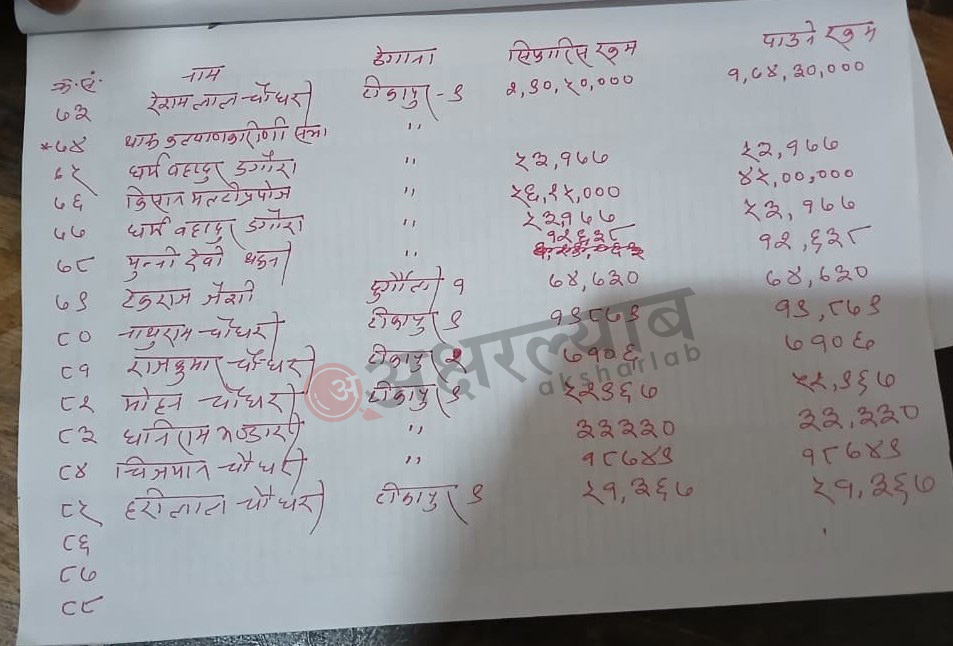 क्र.सं. नाम ठेगाना सिफारिस रकम पाउने रकम
७३ रेशम लाल चौधरी टीकापुर - ९ २,९०,५०,००० १,७४,३०,०००
*७४ थारू कल्याणकारीणी सभा "
७५ धर्म वहादुर डगौरा " ५३,१७७ ५३,१७७
७६ किसान मल्टीप्रपोज " ५६,२५,००० ४५,००,०००
७७ धर्म वहादुर डगौरा " ५३,१७७ ५३,१७७
७८ मुन्नी देवी " १२६३८ १२,६३८
७९ टेकराज जैशी दुर्गौली १ ७४,६३० ७४,६३०
८० नाथुराम चौधरी टीकापुर ९ १९८७९ १९,८७९
८१ राजकुमार चौधरी टीकापुर २ ७१०६ ७१०६
८२ मोहन चौधरी टीकापुर ९ ५२९६७ ५२,९६७
८३ धनिराम भण्डारी " ३३३३० ३३,३३०
८४ चौधरी " १८७४९ १८७४९
८५ हरीलाल चौधरी टीकापुर ९ ५१,३६७ ५१,३६७
८६
८७
८८
अक्षरल्याब
aksharlab